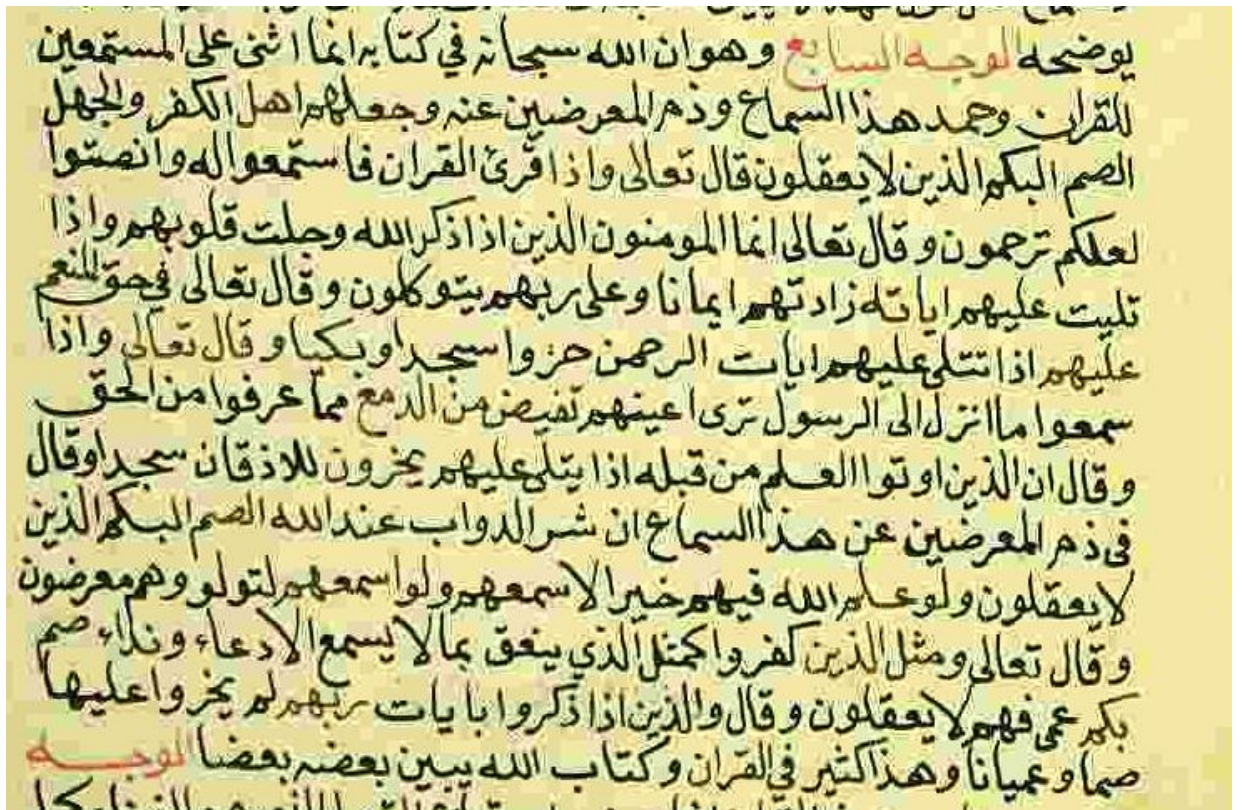 يوضحه الوجه السابع وهو ان الله سبحانه في كتابه انما اثنى على المستمعين
للقران وحمد هذا السماع وذم المعرضين عنه وجعلهم اهل الكفر والجهل
الصم البكم الذين لا يعقلون قال تعالى واذا قرئ القران فاستمعوا له وانصتوا
لعلكم ترحمون وقال تعالى انما المومنون الذين اذا ذكر الله وجلت قلوبهم واذا
تليت عليهم اياته زادتهم ايمانا وعلى ربهم يتوكلون وقال تعالى في حق المنعم
عليهم اذا تتلى عليهم ايات الرحمن خروا سجدا وبكيا وقال تعالى واذا
سمعوا ما انزل الى الرسول ترى اعينهم تفيض من الدمع مما عرفوا من الحق
وقال ان الذين اوتوا العلم من قبله اذا يتلى عليهم يخرون للاذقان سجدا وقال
في ذم المعرضين عن هذا السماع ان شر الدواب عند الله الصم البكم الذين
لا يعقلون ولو علم الله فيهم خيرا لاسمعهم ولو اسمعهم لتولو وهم معرضون
وقال تعالى ومثل الذين كفروا كمثل الذي ينعق بما لا يسمع الا دعاء ونداء صم
بكم عمي فهم لا يعقلون وقال والذين اذا ذكروا بايات ربهم لم يخروا عليها
صما وعميانا وهذا كثير في القران وكتاب الله يبين بعضه بعضا الوجه